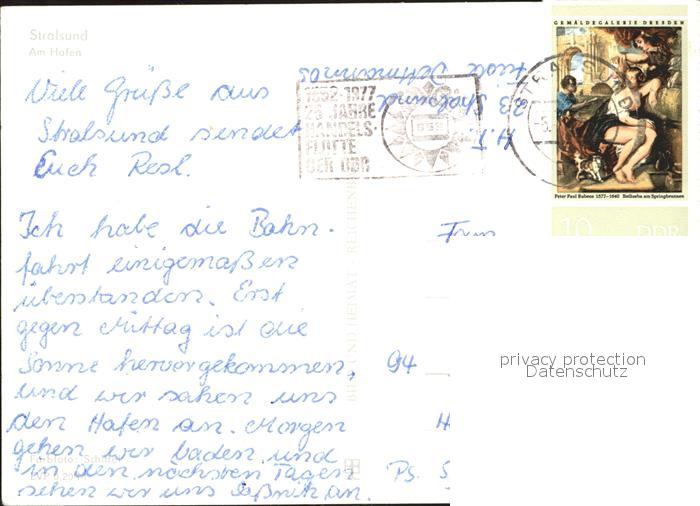 Stralsund
Am Hafen
Viele Grüße aus
Stralsund sendet
Euch Resl.
Ich habe die Bahn-
fahrt einigemaßen
überstanden. Erst
gegen Mittag ist die
Sonne hervorgekommen,
und wir sahen uns
den Hafen an. Morgen
gehen wir baden und
in den nächsten Tagen
sehen wir uns Saßnitz an.
Farbfoto:
1952-1977
25 JAHRE
HANDELS-
FLOTTE
DER DDR
23 Stralsund
BILD UND HEIMAT REICHENB
GEMÄLDEGALERIE DRESDEN
Peter Paul Rubens 1577-1640 Bathseba am Springbrunnen
10 DDR
94
H
PS. S
privacy protection
Datenschutz